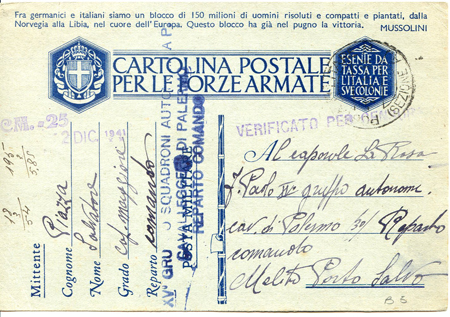 Fra germanici e italiani siamo un blocco di 150 milioni di uomini risoluti e compatti e piantati, dalla
Norvegia alla Libia, nel cuore dell'Europa. Questo blocco ha già nel pugno la vittoria. MUSSOLINI
CARTOLINA POSTALE
PER LE FORZE ARMATE
ESENTE DA
TASSA PER
L'ITALIA E
SVE COLONIE
VERIFICATO PER
2 DIC
XV° GRU O SQUADRONI AUTO
CAVALLEGGERI DI PALERMO
REPARTO COMANDO
POSTA MILITARE
Mittente
Cognome Piazza
Nome Salvatore
Grado Cap. maggiore
Reparto comando
Al caporale La Rosa
gruppo autonomo
cav. di Palermo Reparto
comando
Melito Porto Salvo
B 5